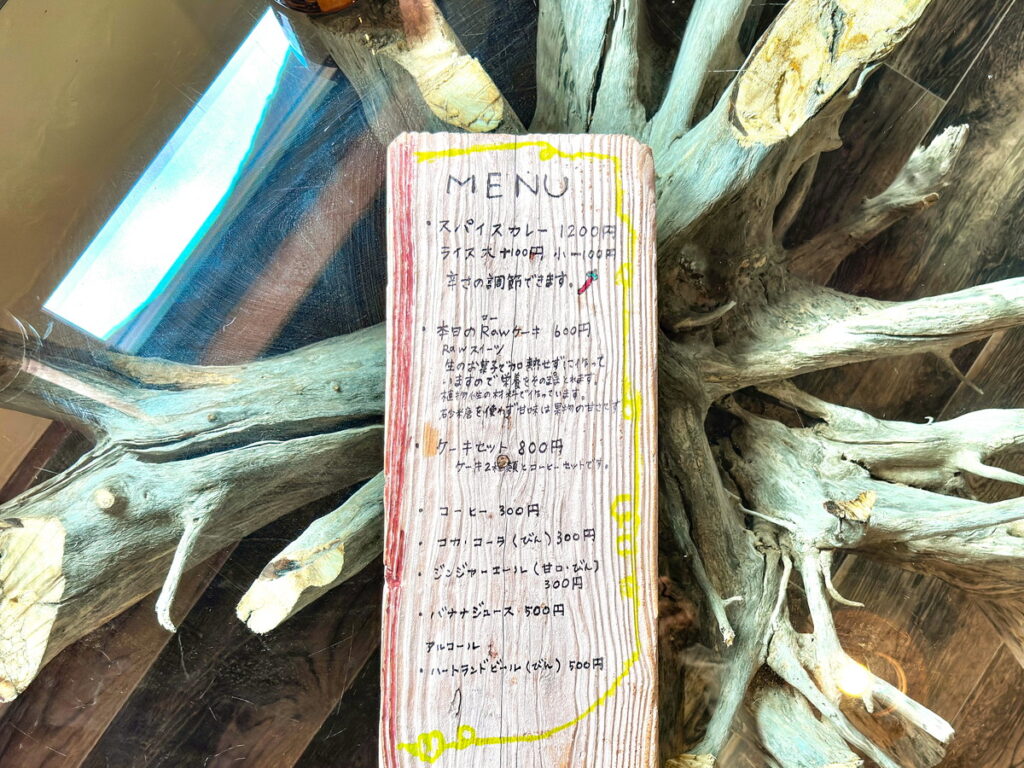 MENU
・スパイスカレー 1200円
ライス 大+100円 小-100円
辛さの調節できます。
ロー
・本日のRawケーキ 600円
RAWスイーツ
生のお菓子で加熱せずに作って
いますので栄養をそのままとれます。
植物性の材料で作っています。
砂糖を使わず甘味は果物の甘さです
・ケーキセット 800円
ケーキ2種類とコーヒーセットです。
・コーヒー 300円
・コカ・コーラ(びん)300円
・ジンジャーエール(甘口・びん)
300円
・バナナジュース 500円
アルコール
・ハートランドビール(びん)500円